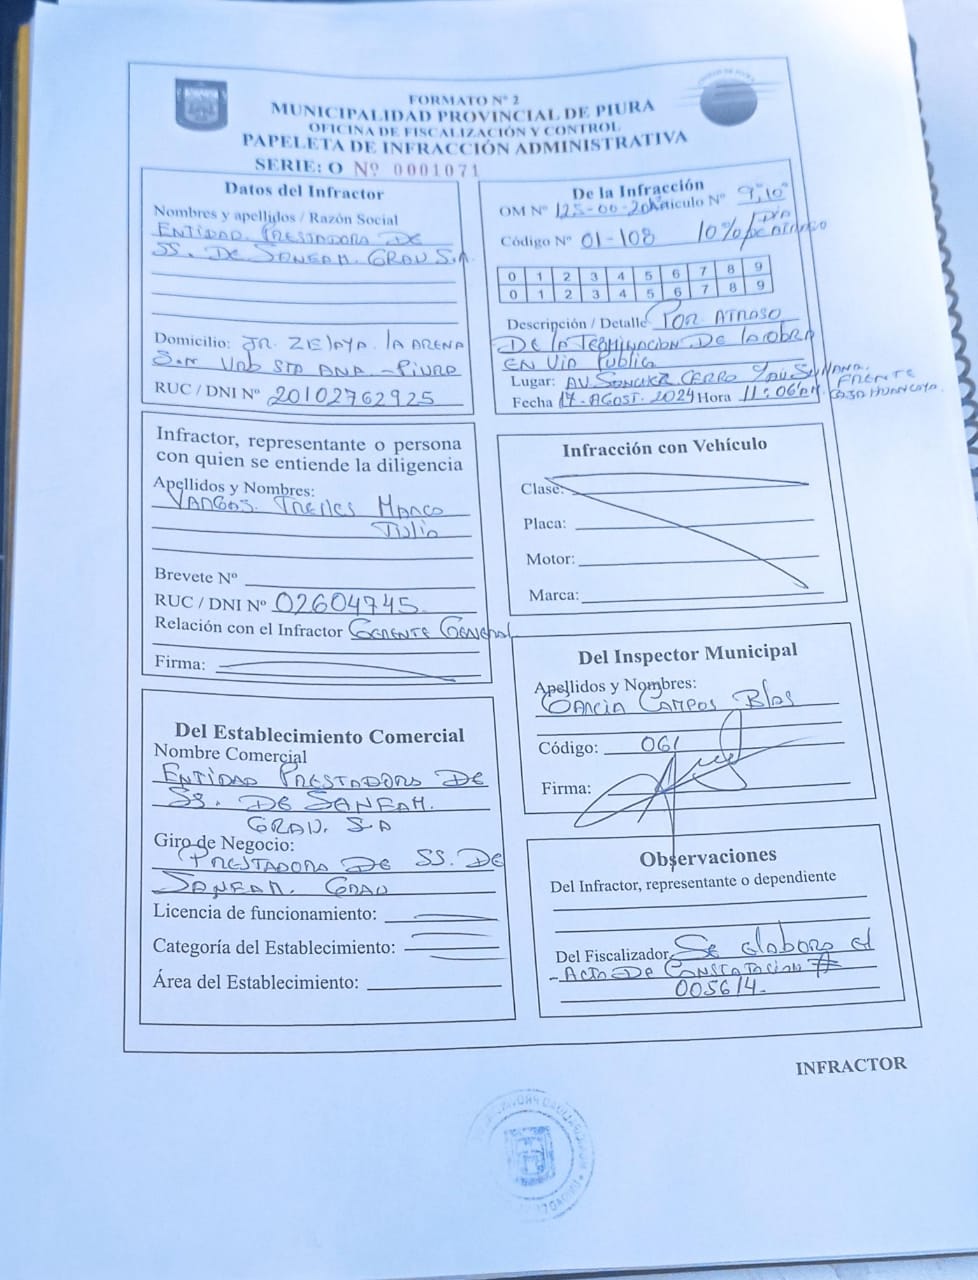 FORMATO Nº 2
MUNICIPALIDAD PROVINCIAL DE PIURA
OFICINA DE FISCALIZACIÓN Y CONTROL
PAPELETA DE INFRACCIÓN ADMINISTRATIVA
SERIE: O Nº 0001071
Datos del Infractor
Nombres y apellidos / Razón Social
ENTIDAD PRESTADORA DE
SS. DE SANEAM. GRAU S.A
Domicilio: JR. ZELAYA. LA ARENA
S.N Urb STA ANA - PIURA
RUC / DNI Nº 20102762925
De la Infracción
OM Nº 125-00- Artículo Nº 9, 10
Código Nº 01-108 10% DIA DE ATRASO
0 1 2 3 4 5 6 7 8 9
0 1 2 3 4 5 6 7 8 9
Descripción / Detalle POR ATRASO
DE LA TERMINACION DE LA OBRA
EN VIA PUBLICA
Lugar: AV. SANCHEZ CERRO Y AV SULLANA.
FRENTE
CAJA HUANCAYO.
Fecha 17-AGOST. 2024 Hora 11:06 AM.
Infractor, representante o persona
con quien se entiende la diligencia
Apellidos y Nombres:
VARGAS. TRELLES MARCO
TULIO
Brevete Nº
RUC / DNI Nº 02604745
Relación con el Infractor GERENTE GENERAL
Firma:
Infracción con Vehículo
Clase:
Placa:
Motor:
Marca:
Del Inspector Municipal
Apellidos y Nombres:
GARCIA CAMPOS Blas
Código: 061
Firma:
Del Establecimiento Comercial
Nombre Comercial
ENTIDAD PRESTADORA DE
SS. DE SANEAM.
GRAU. S.A
Giro de Negocio:
PRESTADORA DE SS. DE
SANEAM. GRAU
Licencia de funcionamiento:
Categoría del Establecimiento:
Área del Establecimiento:
Observaciones
Del Infractor, representante o dependiente
Del Fiscalizador Se elaboro el
- ACTA DE CONSTATACION #
005614-
INFRACTOR